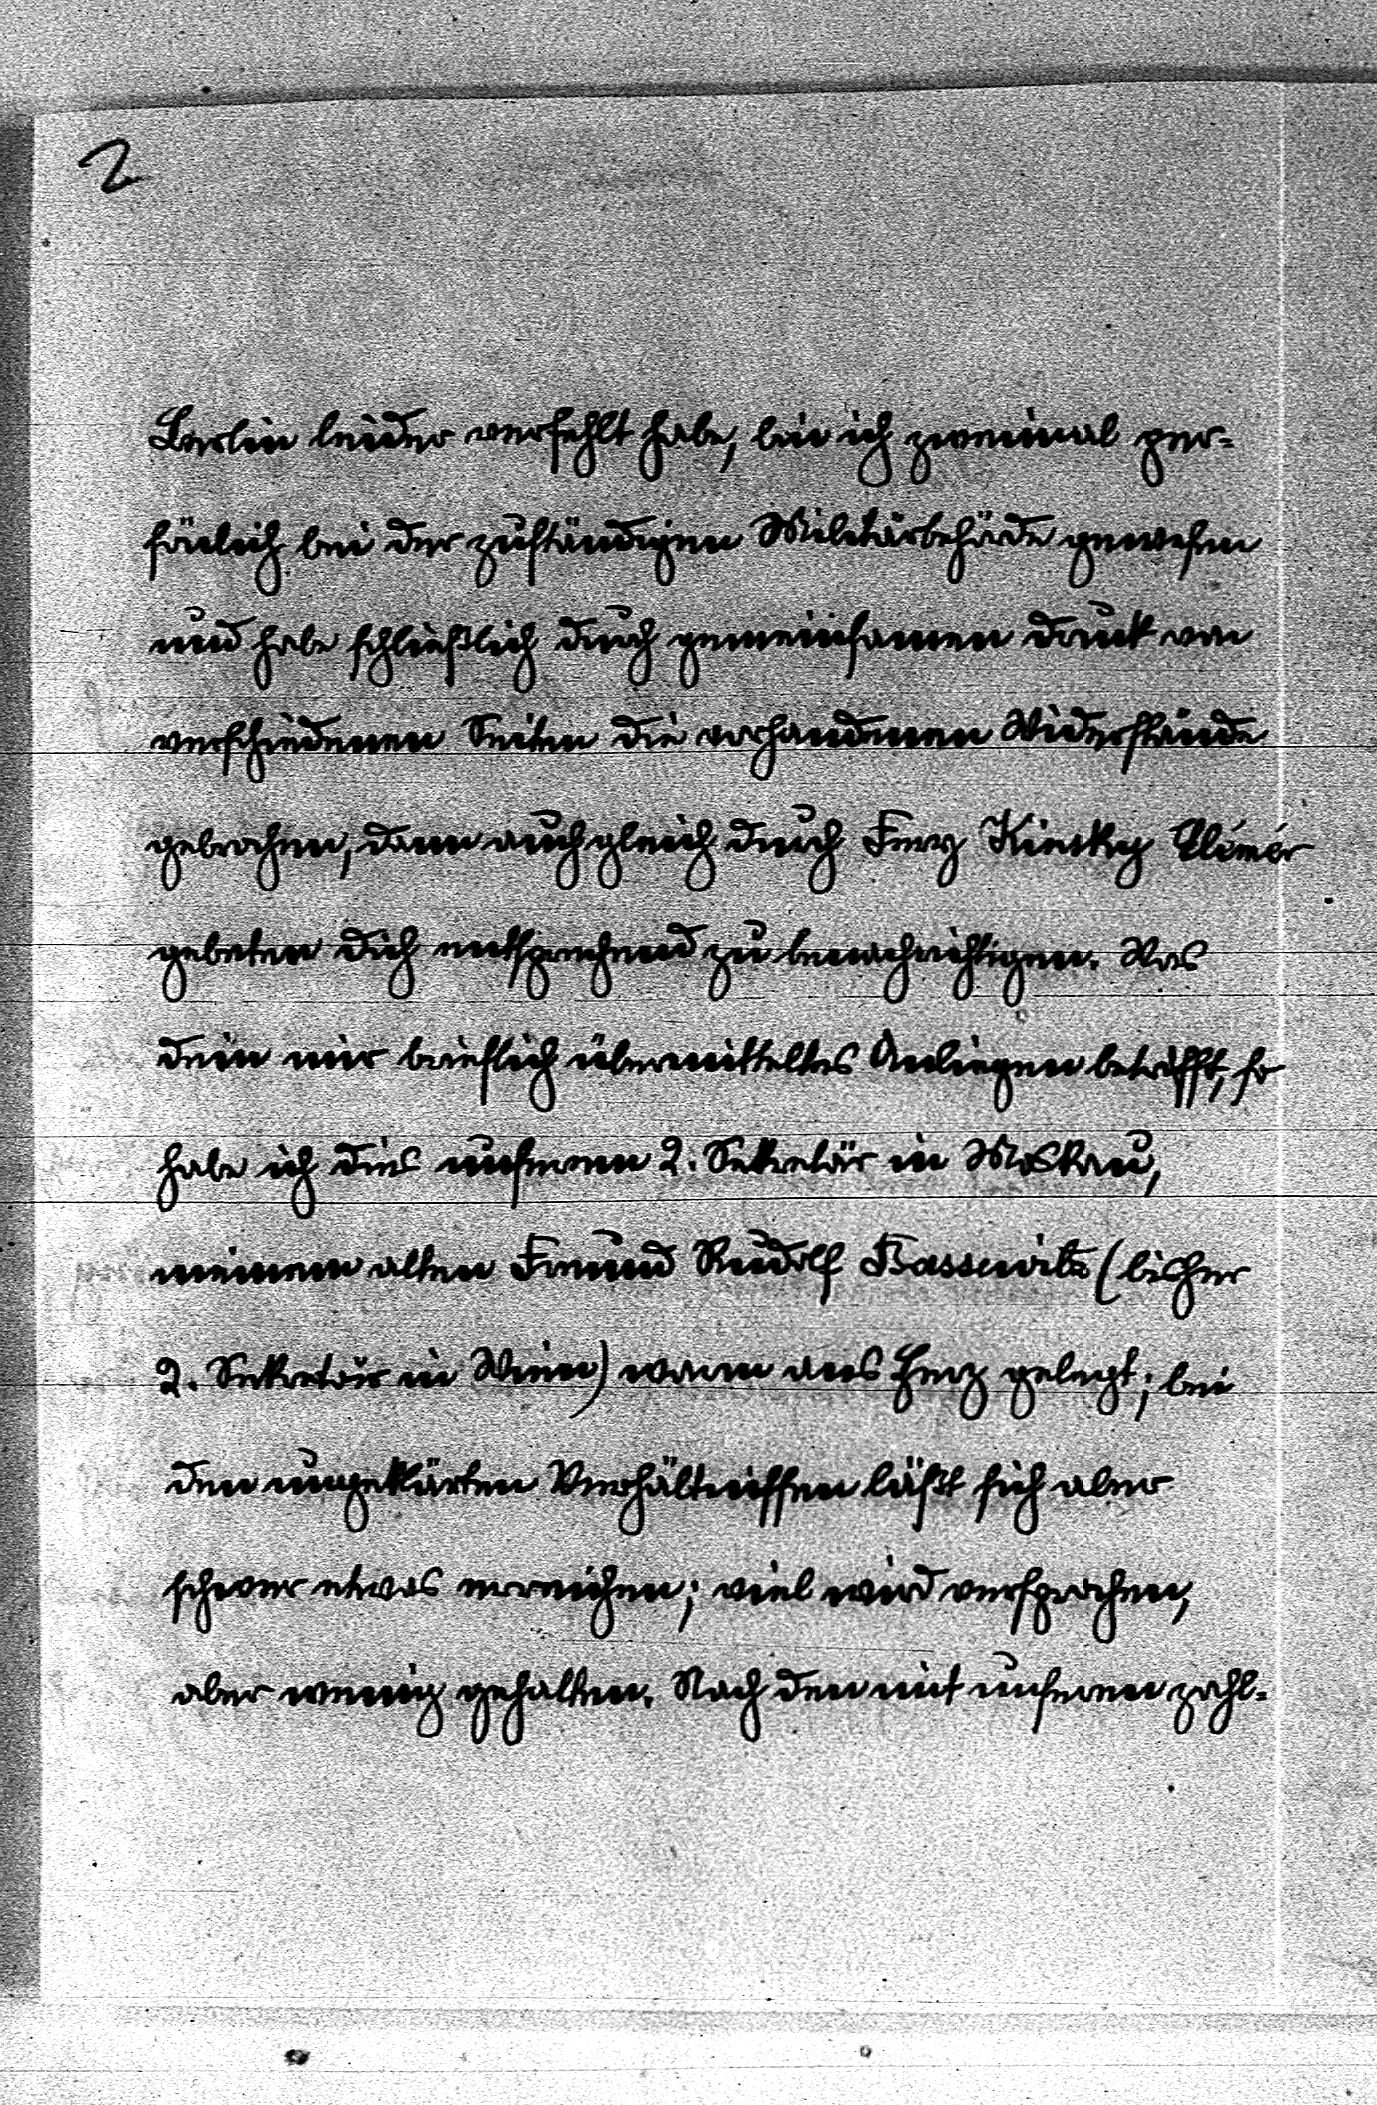 2
Berlin leider verfehlt habe, bin ich zweimal per=
sönlich bei der zuständigen Militärbehörde gewesen
und habe schließlich durch gemeinsamen Druck von
verschiedenen Seiten die vorhandenen Widerstände
gebrochen, dann auch gleich durch Ferry Kinsky Elemér
gebeten Dich entsprechend zu benachrichtigen. Was
dein mir brieflich übermitteltes Anliegen betrifft, so
habe ich dies unserem 2. Sekretär in Moskau,
meinem alten Freund Rudolf Bassewitz (bisher
2. Sekretär in Wien) warm ans Herz gelegt; bei
den ungeklärten Verhältnissen läßt sich aber
schwer etwas erreichen; viel wird versprochen,
aber wenig gehalten. Nach den mit unseren zahl=